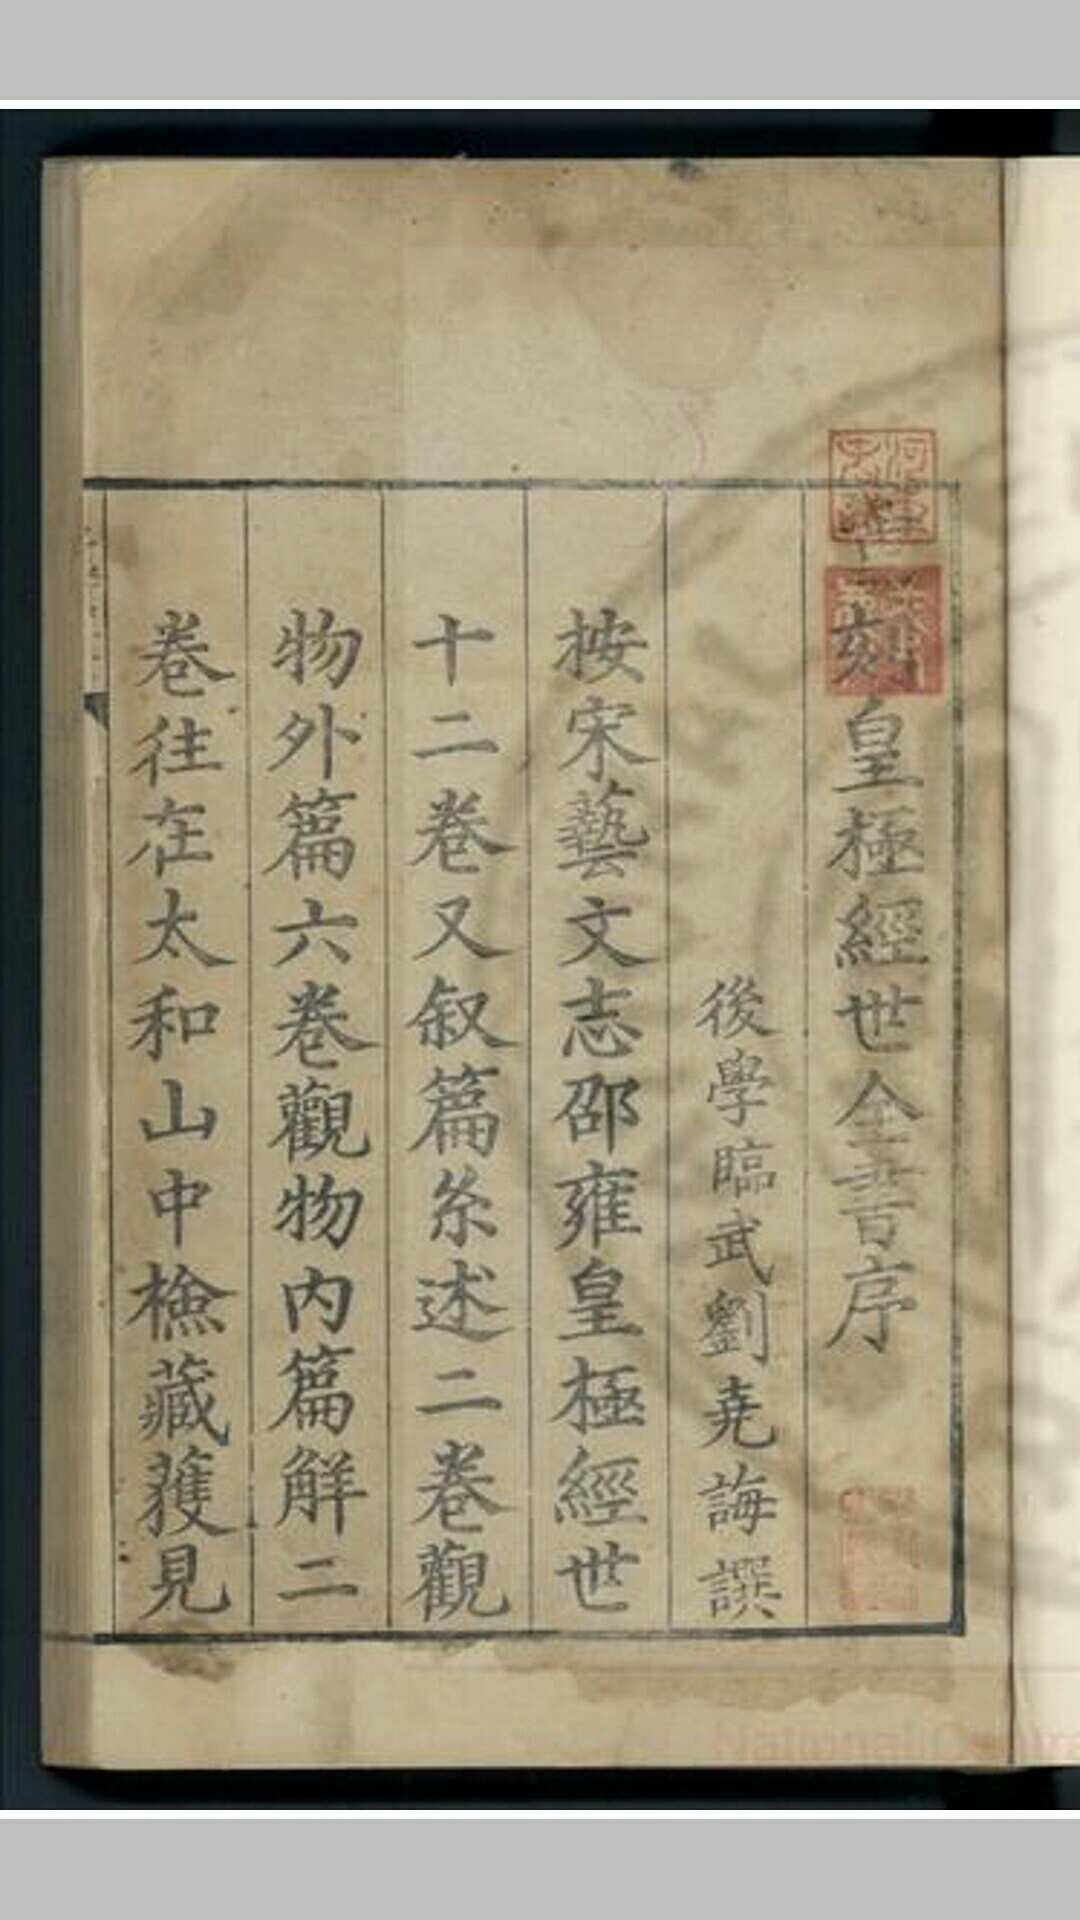 刻皇極經世全書序
後學臨武劉堯誨譔
按宋藝文志邵雍皇極經世
十二卷又叙篇系述二卷觀
物外篇六卷觀物内篇解二
卷往在太和山中檢藏獲見
National Central